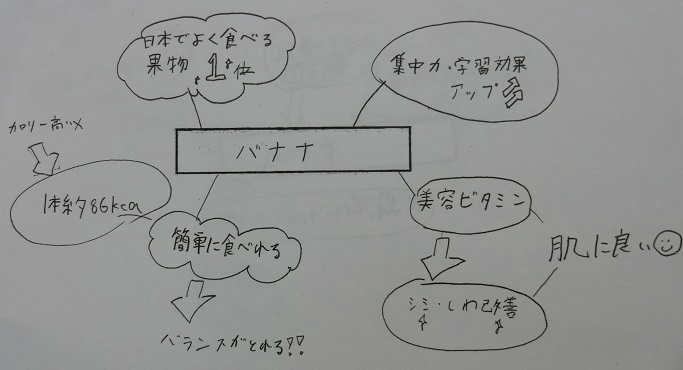 日本でよく食べる
果物 1位
集中力・学習効果
アップ
カロリー高い×
バナナ
1本約86kcal
美容ビタミン
簡単に食べれる
肌に良い
シミ・しわ改善
バランスがとれる?!